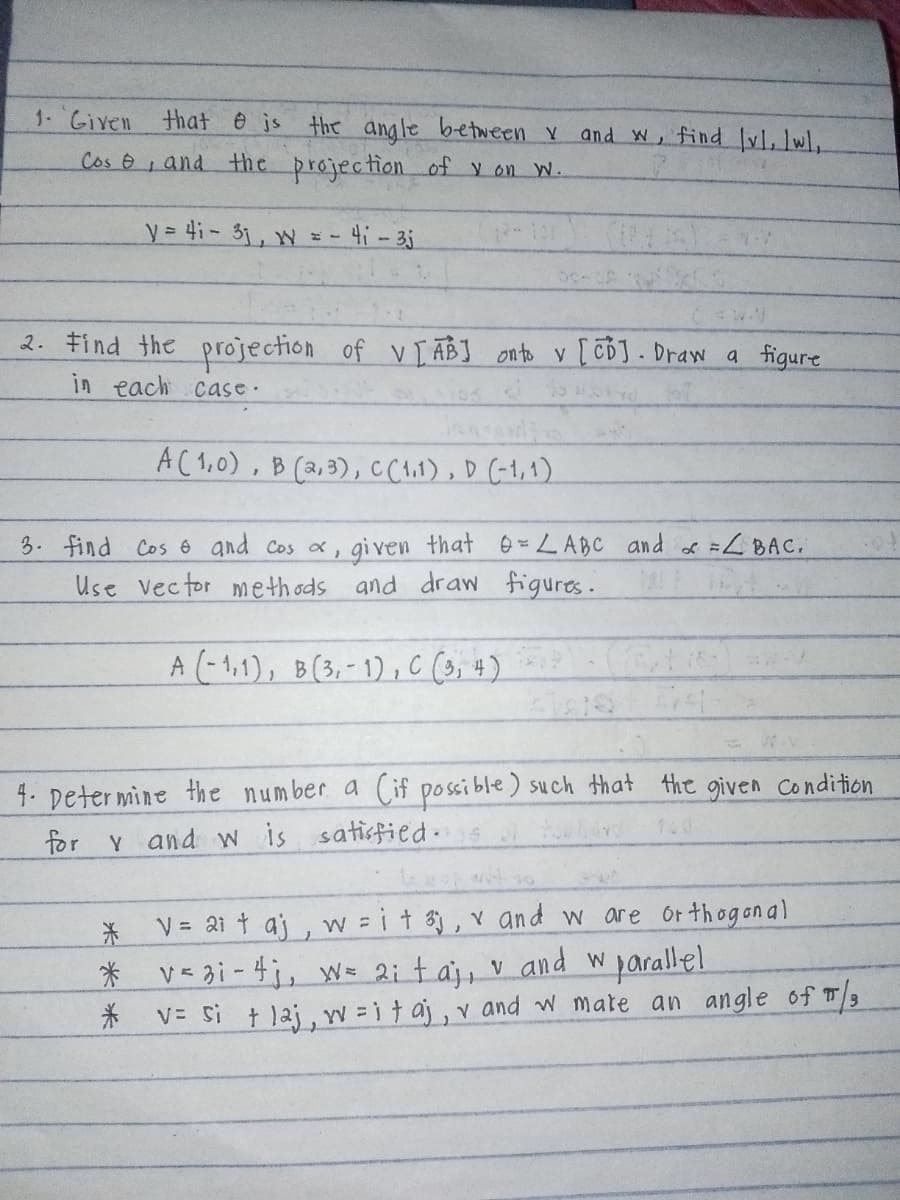 1. Given that θ is the angle between v and w, find |v|, |w|,
Cos θ, and the projection of v on w.
v = 4i - 3j, w = - 4i - 3j
2. Find the projection of v [AB→] onto v [CD→]. Draw a figure
in each case.
A(1,0), B(2,3), C(1,1), D(-1,1)
3. find Cos θ and Cos α, given that θ = ∠ABC and α = ∠BAC.
Use vector methods and draw figures.
A(-1,1), B(3,-1), C(3,4)
4. Determine the number a (if possible) such that the given Condition
for v and w is satisfied.
* V = 2i + aj, w = i + 3j, v and w are orthogonal
* v = 3i - 4j, w = 2i + aj, v and w parallel
* V = 5i + 12j, w = i + aj, v and w make an angle of π/3